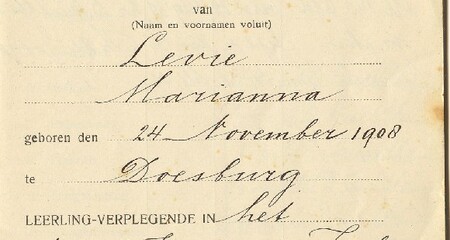 van
(Naam en voornamen voluit)
Levie
Marianna
geboren den 24 November 1908
te Doesburg
LEERLING-VERPLEGENDE IN het